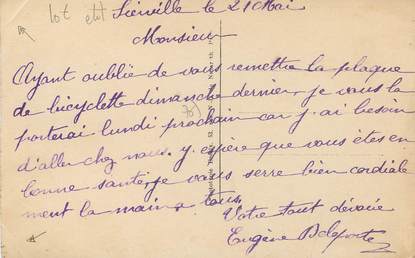 lot etat
Siéville le 21 Mai
Monsieur
Ayant oubliée de vous remettre la plaque
de bicyclette dimanche dernier, je vous la
porterai lundi prochain car j'ai besoin
d'aller chez nous. j'espère que vous êtes en
bonne santé, je vous serre bien cordiale
ment la main a tous.
Votre tout dévoué
Eugène Delaporte